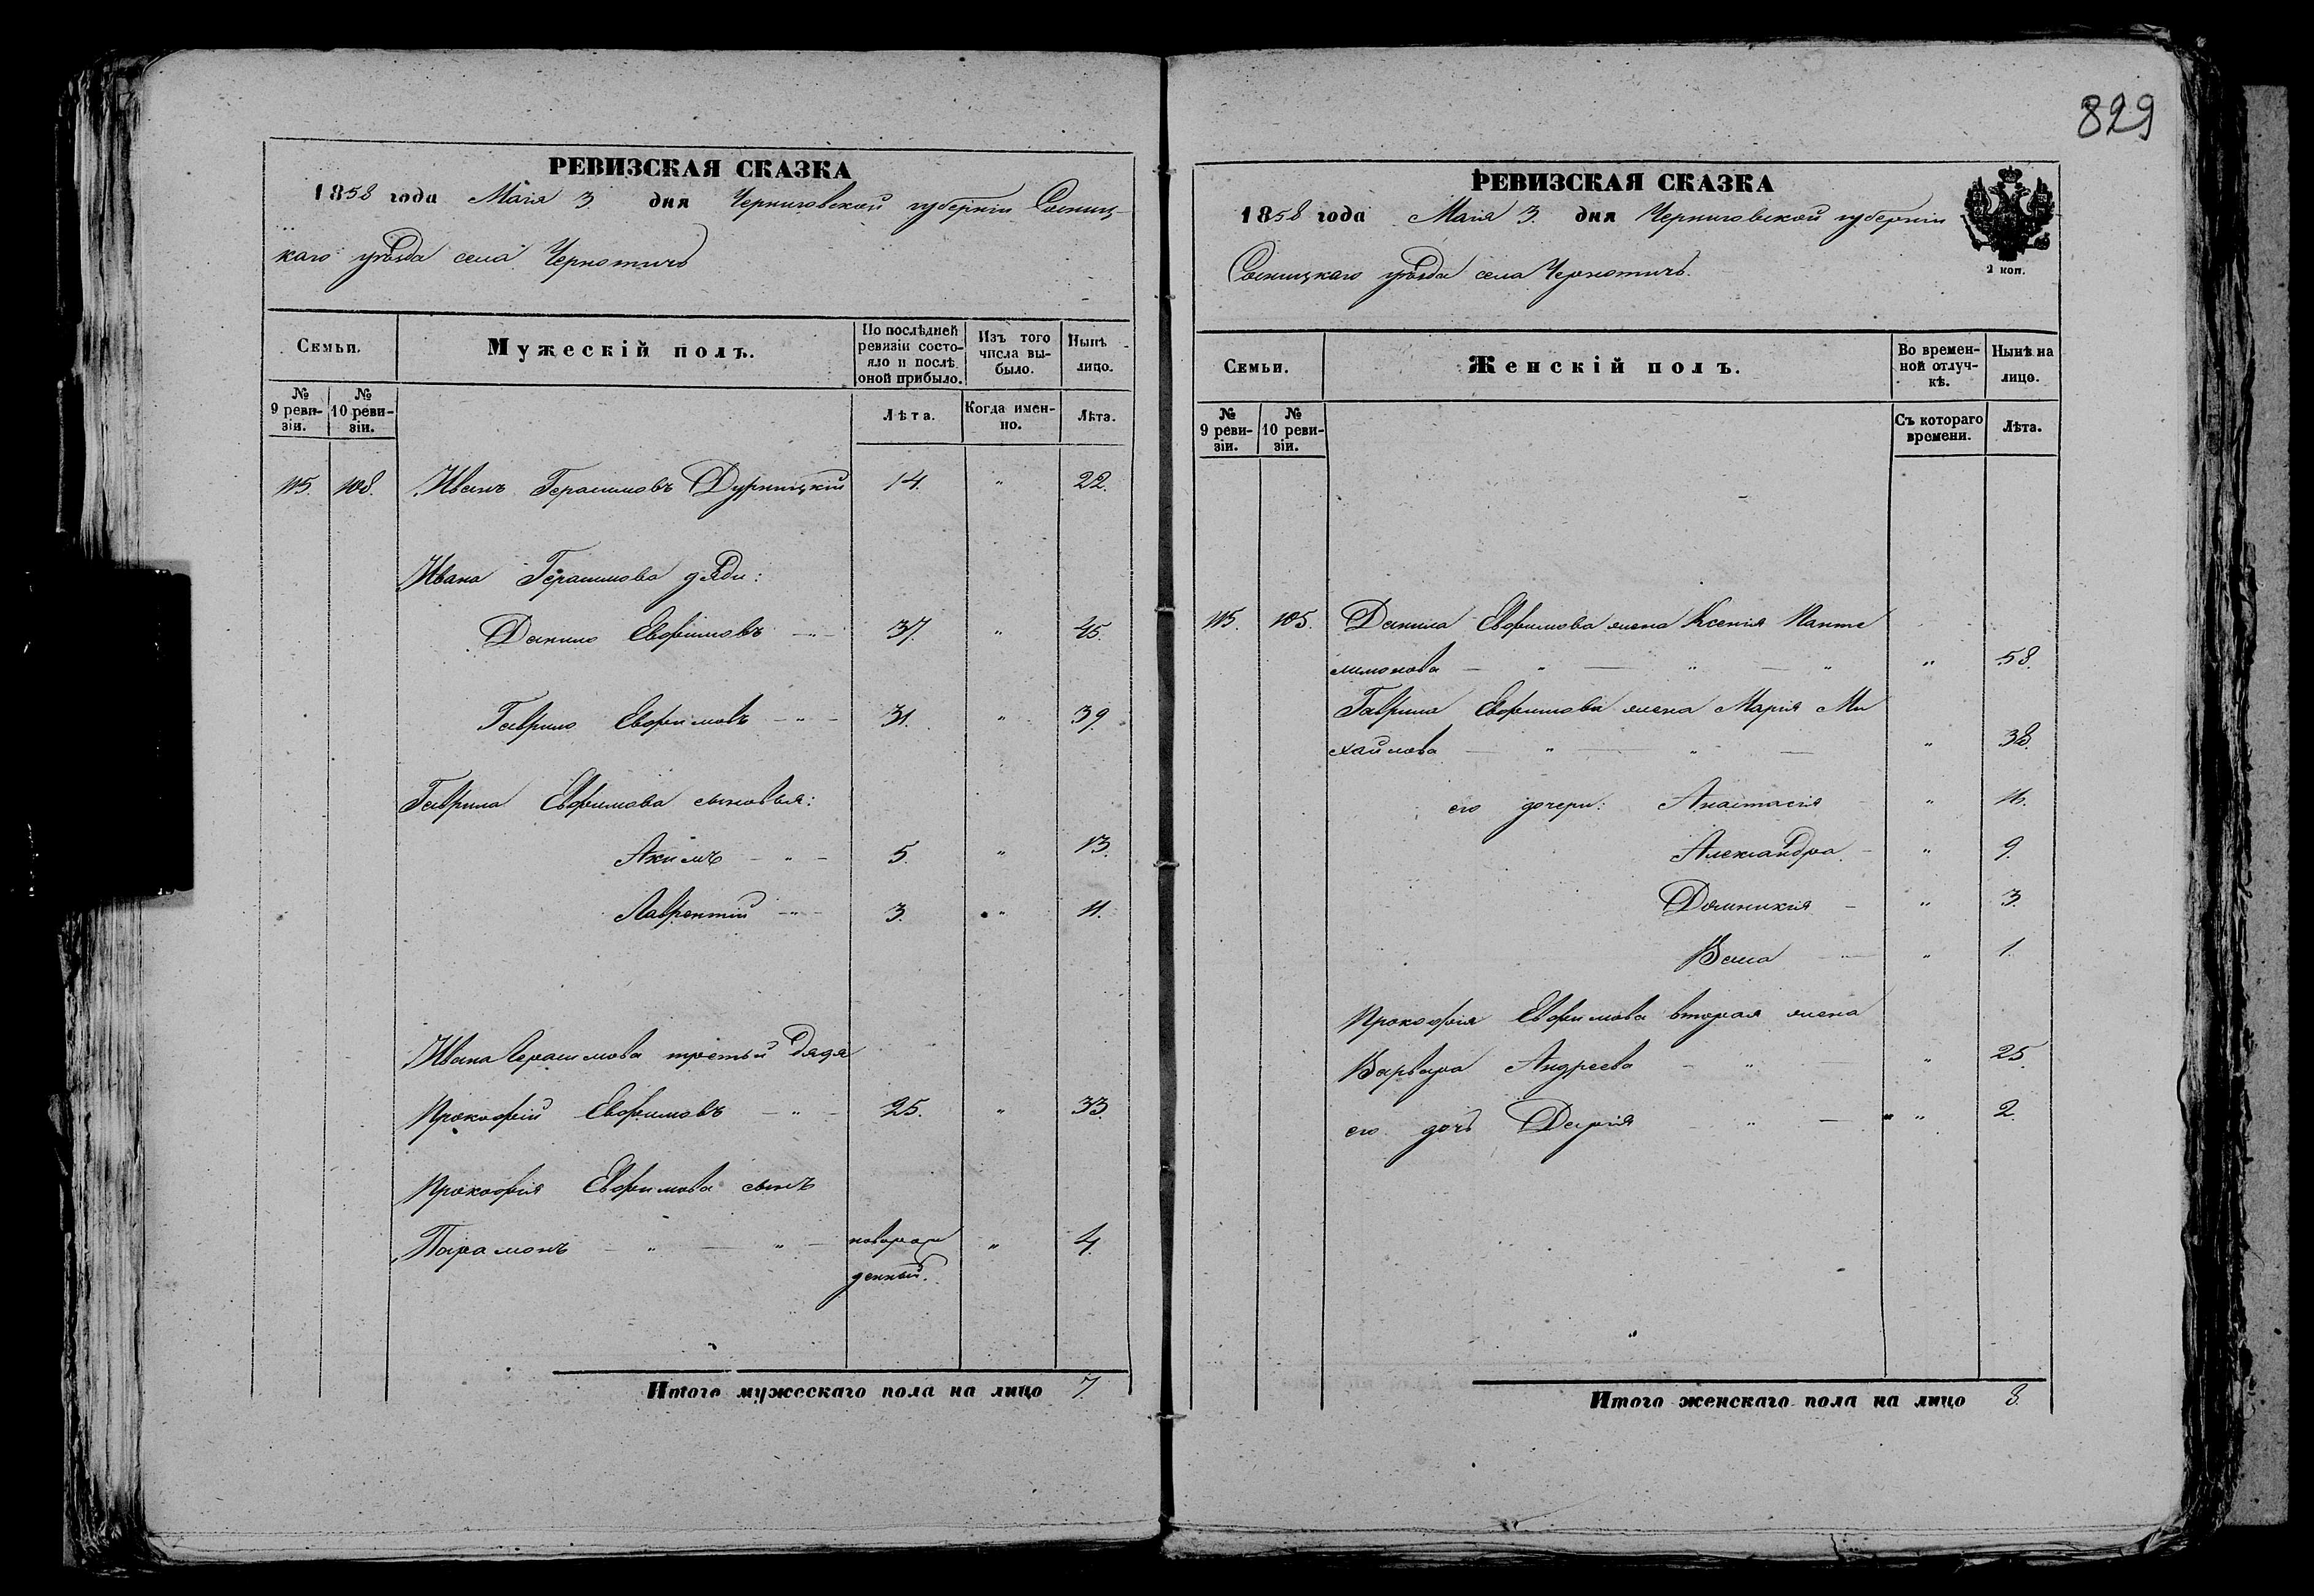 829
РЕВИЗСКАЯ СКАЗКА
1858 года Мая 3 дня Черниговской губерніи Сосниц-
каго уѣзда села Чернотичъ
Семьи.
Мужескій полъ.
По послѣдней ревизіи состо-яло и послѣ оной прибыло.
Изъ того числа вы-было.
Нынѣ лицо.
№ 9 реви-зіи.
№ 10 реви-зіи.
Лѣта.
Когда имен-но.
Лѣта.
115. 108. Иванъ Герасимовъ 14. " 22.
Ивана Герасимова дяди:
Данило Евфимовъ — " — 37. " 45.
Гаврило Евфимовъ — " — 31. " 39.
Гаврила Евфимова сыновья:
Акимъ — " — 5. " 13.
Лаврентій — " — 3. " 11.
Ивана Герасимова третьи дядя
Прокофій Евфимовъ — " — 25. " 33.
Прокофія Евфимова сынъ
Парамонъ — " — " — новорож " 4.
денный.
Итого мужескаго пола на лицо 7
РЕВИЗСКАЯ СКАЗКА
1858 года Мая 3. дня Черниговской губерніи
Сосницкаго уѣзда села Чернотичъ.
2 коп.
Семьи.
Женскій полъ.
Во времен-ной отлуч-кѣ.
Нынѣ на лицо.
№ 9 реви-зіи.
№ 10 реви-зіи.
Съ котораго времени.
Лѣта.
115. Данила Евфимова жена Ксенія Панте
лимонова — " — " — " " 58.
Гаврила Евфимова жена Марія Ми
хайлова — " — " — " 38.
его дочери: Анастасія "
Александра — " 9.
Домникія — " 3.
Васса — " 1.
Прокофія Евфимова вторая жена
Варвара Андреева — " — " 25.
его дочь Дарія — " — " 2.
Итого женскаго пола на лицо 8.